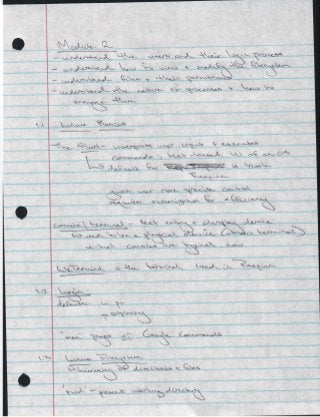 Module 2
- understand the users and their login process
- understand how to view + modify the filesystem
- understand files + their permissions
- understand the nature of processes + how to
manage them
1.1 Linux Basics
The Shell - interprets user inputs + executes
commands; text based UI of an OS
↳ default for is bash
Raspian
gives user more precise control
requires subscription for efficiency
console/terminal - text entry + display device
↳ used to be a physical device (
virtual consoles are typical now
LXTerminal is the terminal used in Raspian
1.2 Login
defaults u: pi
p: raspberry
'man' pages Google commands
1.3 Linux Filesystem
- hierarchy of directories + files
'pwd' - present working directory